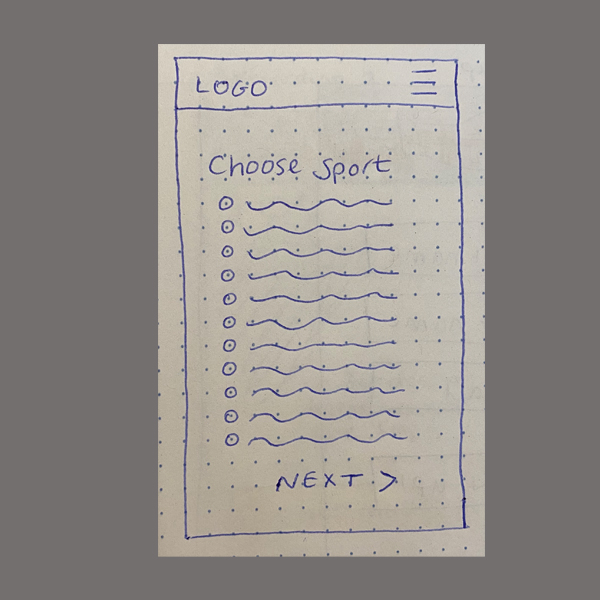 LOGO
Choose sport
NEXT >